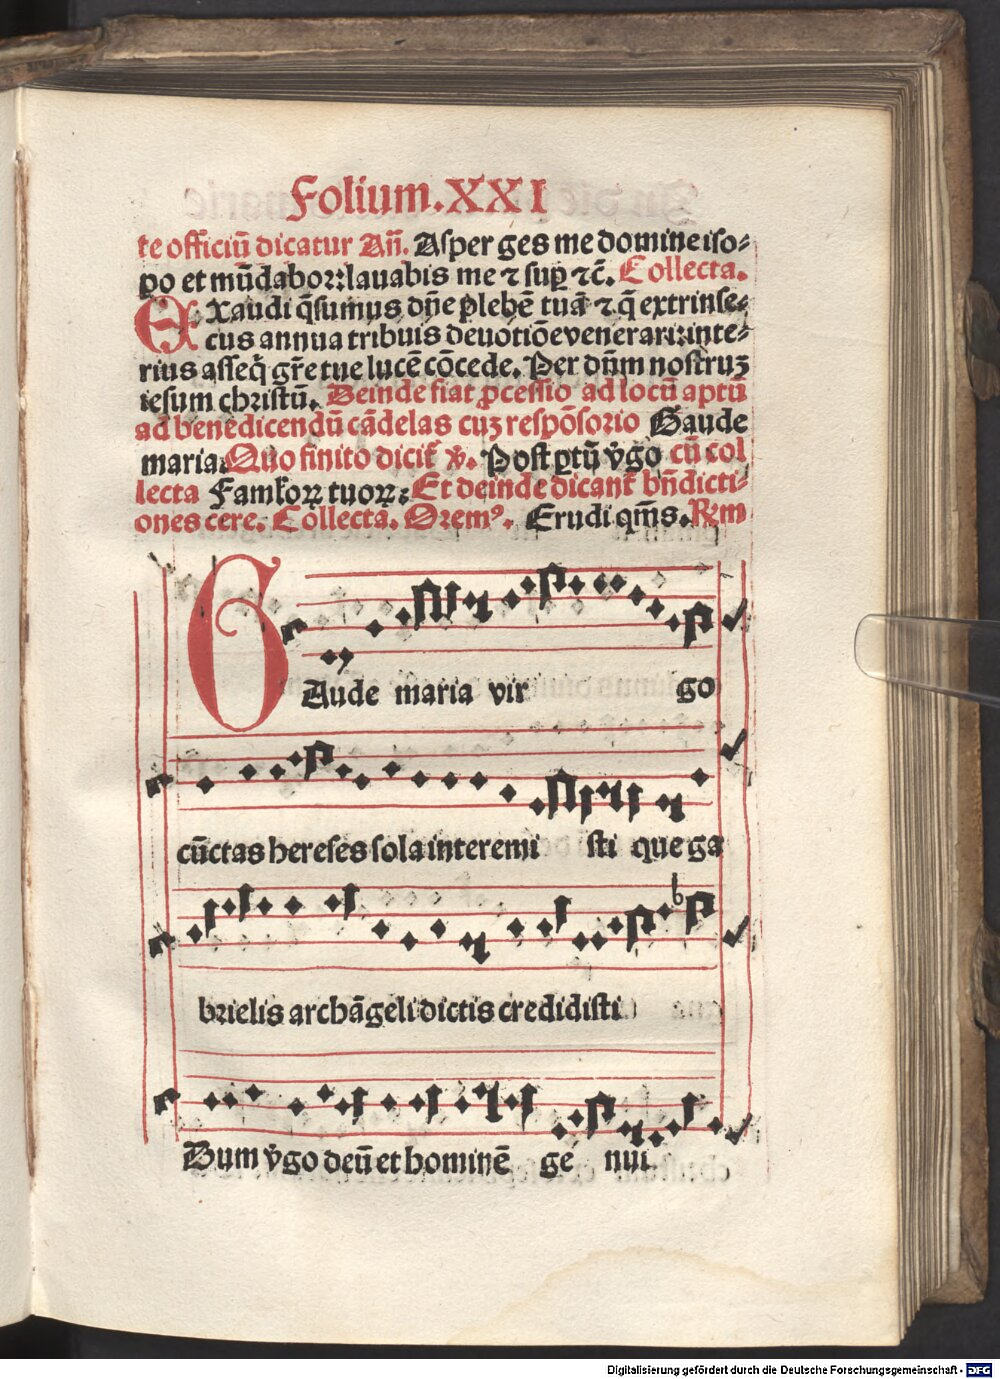 Folium.XXI
te officiū dicatur Añ. Asper ges me domine iso⸗
po et mūdabor:lauabis me ⁊ suꝑ ⁊c̄. Collecta.
EXaudi q̄sumus dn̄e plebē tuā ⁊ q̄ extrinse⸗
cus annua tribuis deuotiōe venerari: inte⸗
rius asseq̄ gr̄e tue lucē cōcede. Per dn̄m nostruꝫ
iesum christū. Deinde fiat ꝓcessio ad locū aptū
ad benedicendū cādelas cuꝫ respōsorio Gaude
maria. Quo finito dicit̄ ꝟ. Post ꝑtū v̄go cū col
lecta Famĺoꝝ tuoꝝ: Et deinde dicant̄ bn̄dicti⸗
ones cere. Collecta. Orem⁹. Erudi qm̄s. Rm
GAude maria vir go
cūctas hereses sola interemi sti que ga
b
brielis archāgeli dictis credidisti
Dum v̄go deū et hominē ge nui
Digitalisierung gefördert durch die Deutsche Forschungsgemeinschaft - DFG